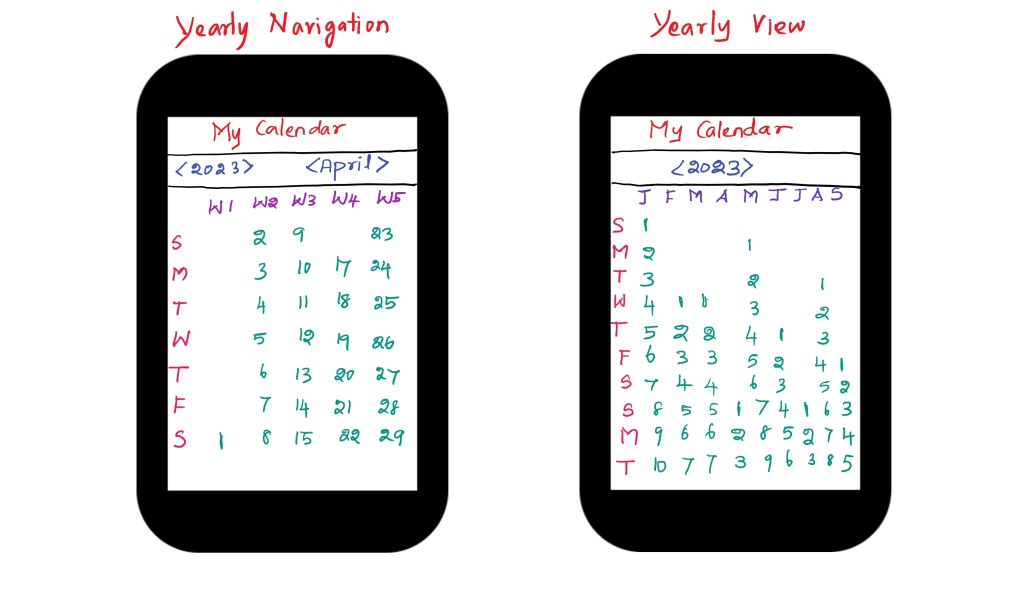 Yearly Navigation
My Calendar
<2023> <April>
W1 W2 W3 W4 W5
S 2 9 23
M 3 10 17 24
T 4 11 18 25
W 5 12 19 26
T 6 13 20 27
F 7 14 21 28
S 1 8 15 22 29
Yearly View
My Calendar
<2023>
J F M A M J J A S
S 1
M 2 1
T 3 2 1
W 4 1 1 3 2
T 5 2 2 4 1 3
F 6 3 3 5 2 4 1
S 7 4 4 6 3 5 2
S 8 5 5 1 7 4 1 6 3
M 9 6 6 2 8 5 2 7 4
T 10 7 7 3 9 6 3 8 5